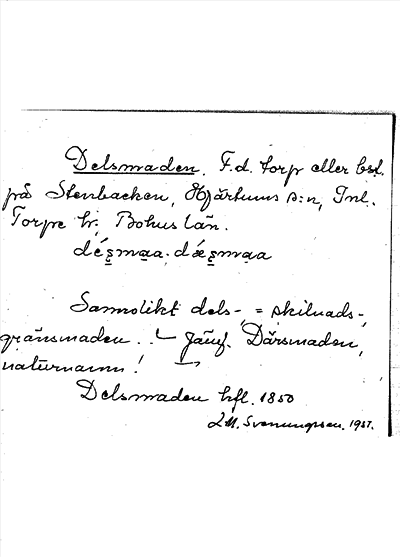 Delsmaden. F.d. torp eller bst.
på Stenbacken, Hjärtums s:n, Inl.
Torpe hr, Bohuslän.
désmaa. dǽsmaa
Sannolikt dels- = skilnads-,
gränsmaden. Jämf. Därsmaden,
naturnamn!
Delsmaden hfl. 1850
Svenungsson. 1937.